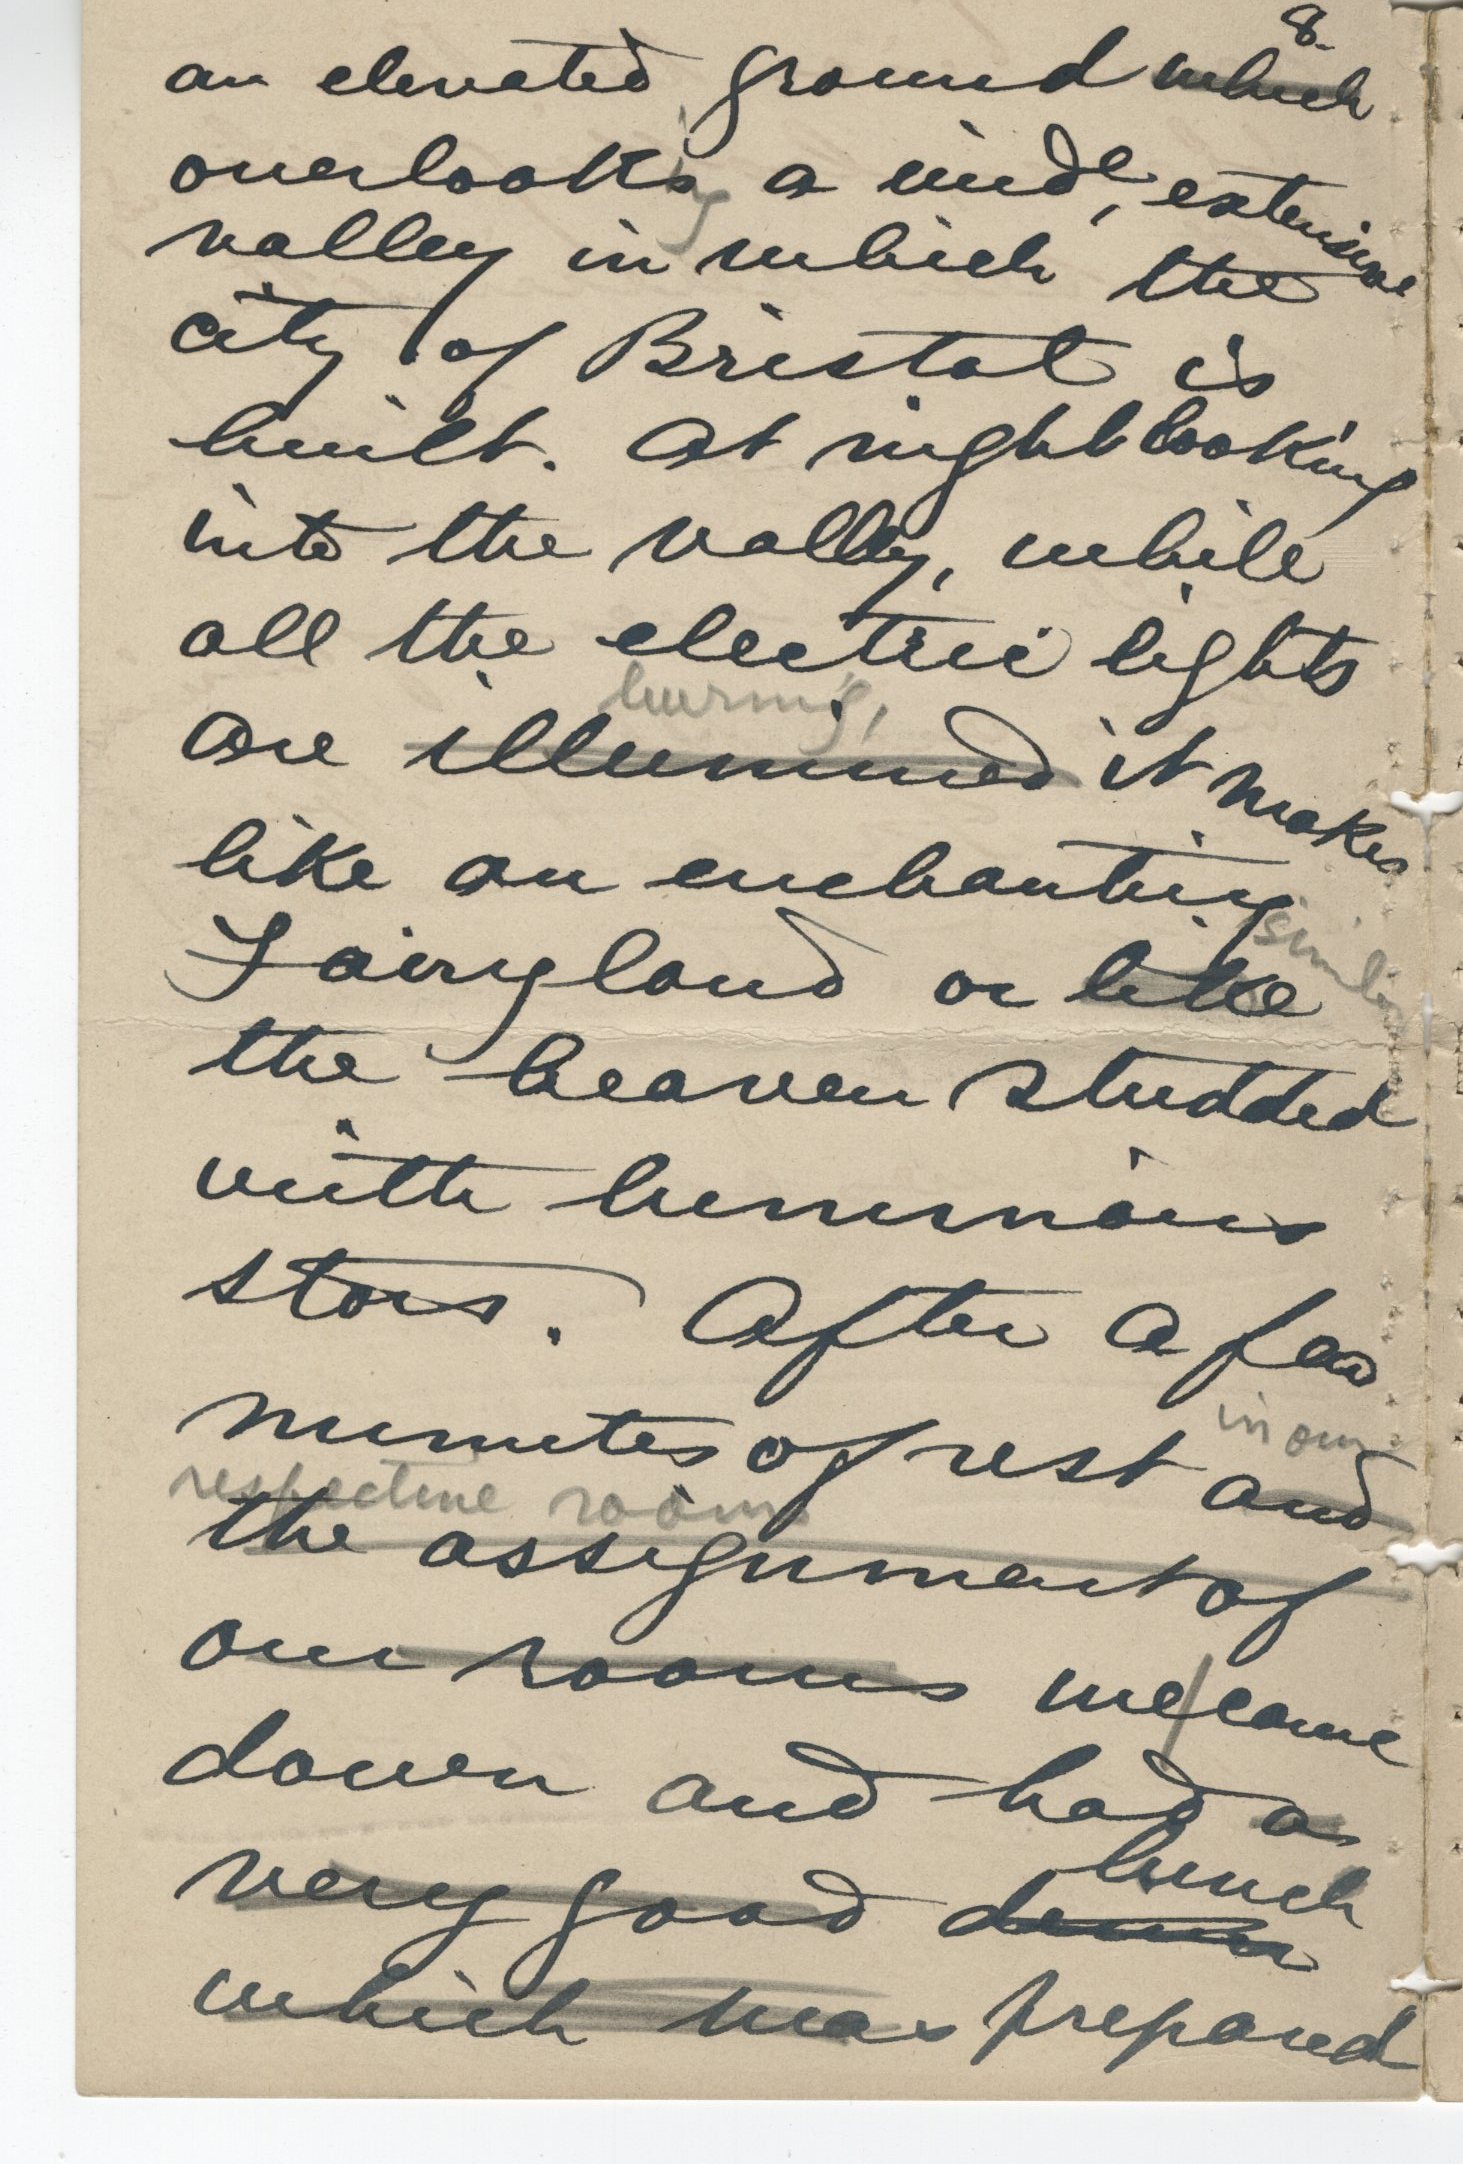 8.
an elevated ground which
overlooks ing a wide, extensive
valley in which the
city of Bristol is
built. At night looking
into the valley, while
all the electric lights
burning,
are illumined it makes
like an enchanting
similar
Fairyland or like
the heaven studded
with luminous
stars. After a few
in our
minutes of rest and
respective rooms
the assignment of
our rooms we came
down and had a
lunch
very good
which was prepared